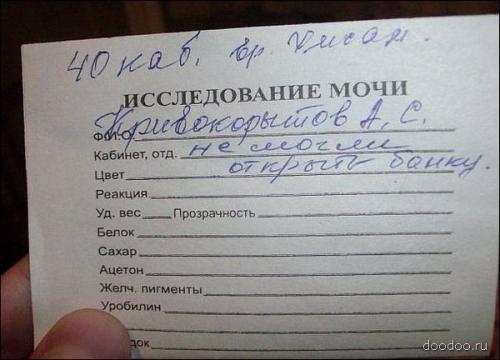 40 каб. вр.
ИССЛЕДОВАНИЕ МОЧИ
Ф.И.О. Кривокорытов А. С.
Кабинет, отд. не смогли
Цвет открыть банку.
Реакция
Уд. вес Прозрачность
Белок
Сахар
Ацетон
Желч. пигменты
Уробилин
doodoo.ru